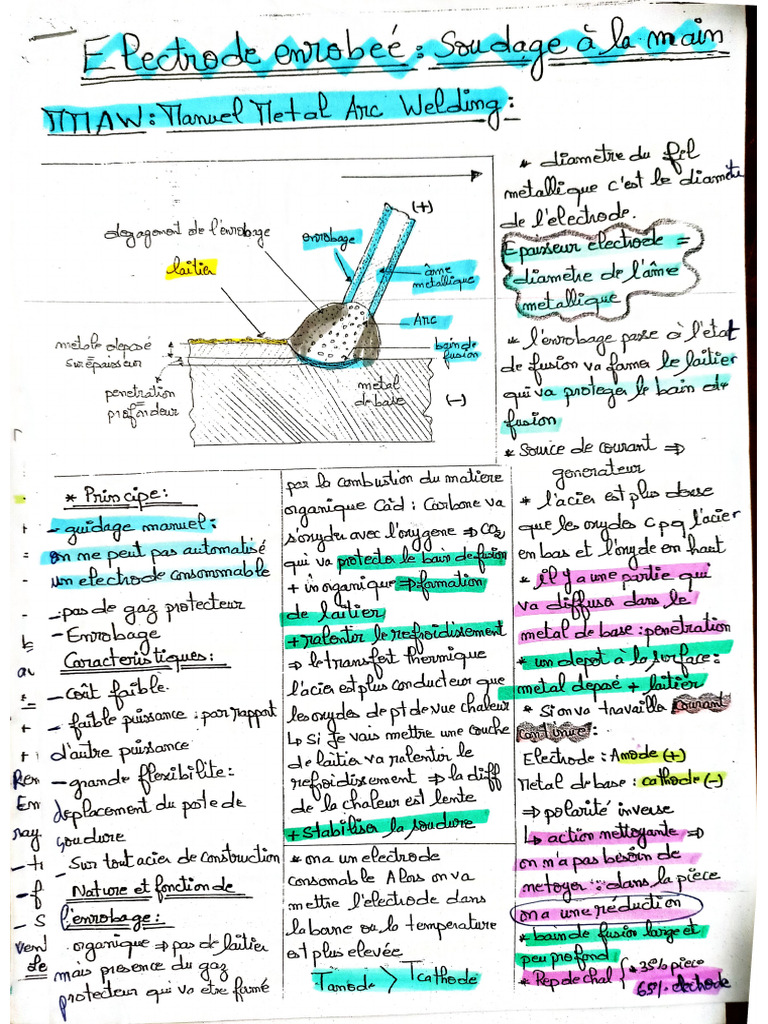 Electrode enrobeé : Soudage à la main
MMAW : Manuel Metal Arc Welding :
degagement de l'enrobage
laitier
enrobage
(+)
âme
metallique
Arc
bain de
fusion
metale deposé
surépaisseur
penetration
=
profondeur
metal
de base
(-)
* diametre du fil
metallique c'est le diametre
de l'electrode.
Epaisseur electrode =
diamètre de l'âme
metallique
* l'enrobage passe à l'état
de fusion va former le laitier
qui va proteger le bain de
fusion
* Source de courant ⇒
generateur
* l'acier est plus dense
que les oxydes c pq l'acier
en bas et l'oxyde en haut
* il y a une partie qui
va diffuser dans le
metal de base : penetration
* un depot à la surface :
metal deposé + laitier
* Si on va travailler courant
continue :
Electrode : Anode (+)
Metal de base : cathode (-)
⇒ polarité inverse
↳ action nettoyante ⇒
on n'a pas besoin de
netoyer : dans la piece
on a une réduction
* bain de fusion large et
peu profond
* Rep de chal { * 35% piece
65% electrode
* Principe :
- guidage manuel :
on ne peut pas automatisé
un electrode consommable
- pas de gaz protecteur
- Enrobage
Caracteristiques :
- Coût faible.
- faible puissance : par rappat
d'autre puissance
- grande flexibilite :
deplacement du poste de
soudure
- Sur tout acier de construction
Nature et fonction de
l'enrobage :
organique ⇒ pas de laitier
mais presence du gaz
protecteur qui va etre formé
par la combustion du matiere
organique Càd : Carbone va
s'oxyder avec l'oxygene ⇒ CO2
qui va protecter le bain de fusion
+ inorganique ⇒ formation
de laitier
+ ralentir le refroidissement
⇒ le transfert thermique
l'acier est plus conducteur que
les oxydes de pt de vue chaleur
↳ Si je vais mettre une couche
de laitier va ralentir le
refroidissement ⇒ la diff
de la chaleur est lente
+ Stabiliser la soudure
* on a un electrode
consomable Alors on va
mettre l'electrode dans
la borne ou la temperature
est plus elevée
Tanode > Tcathode